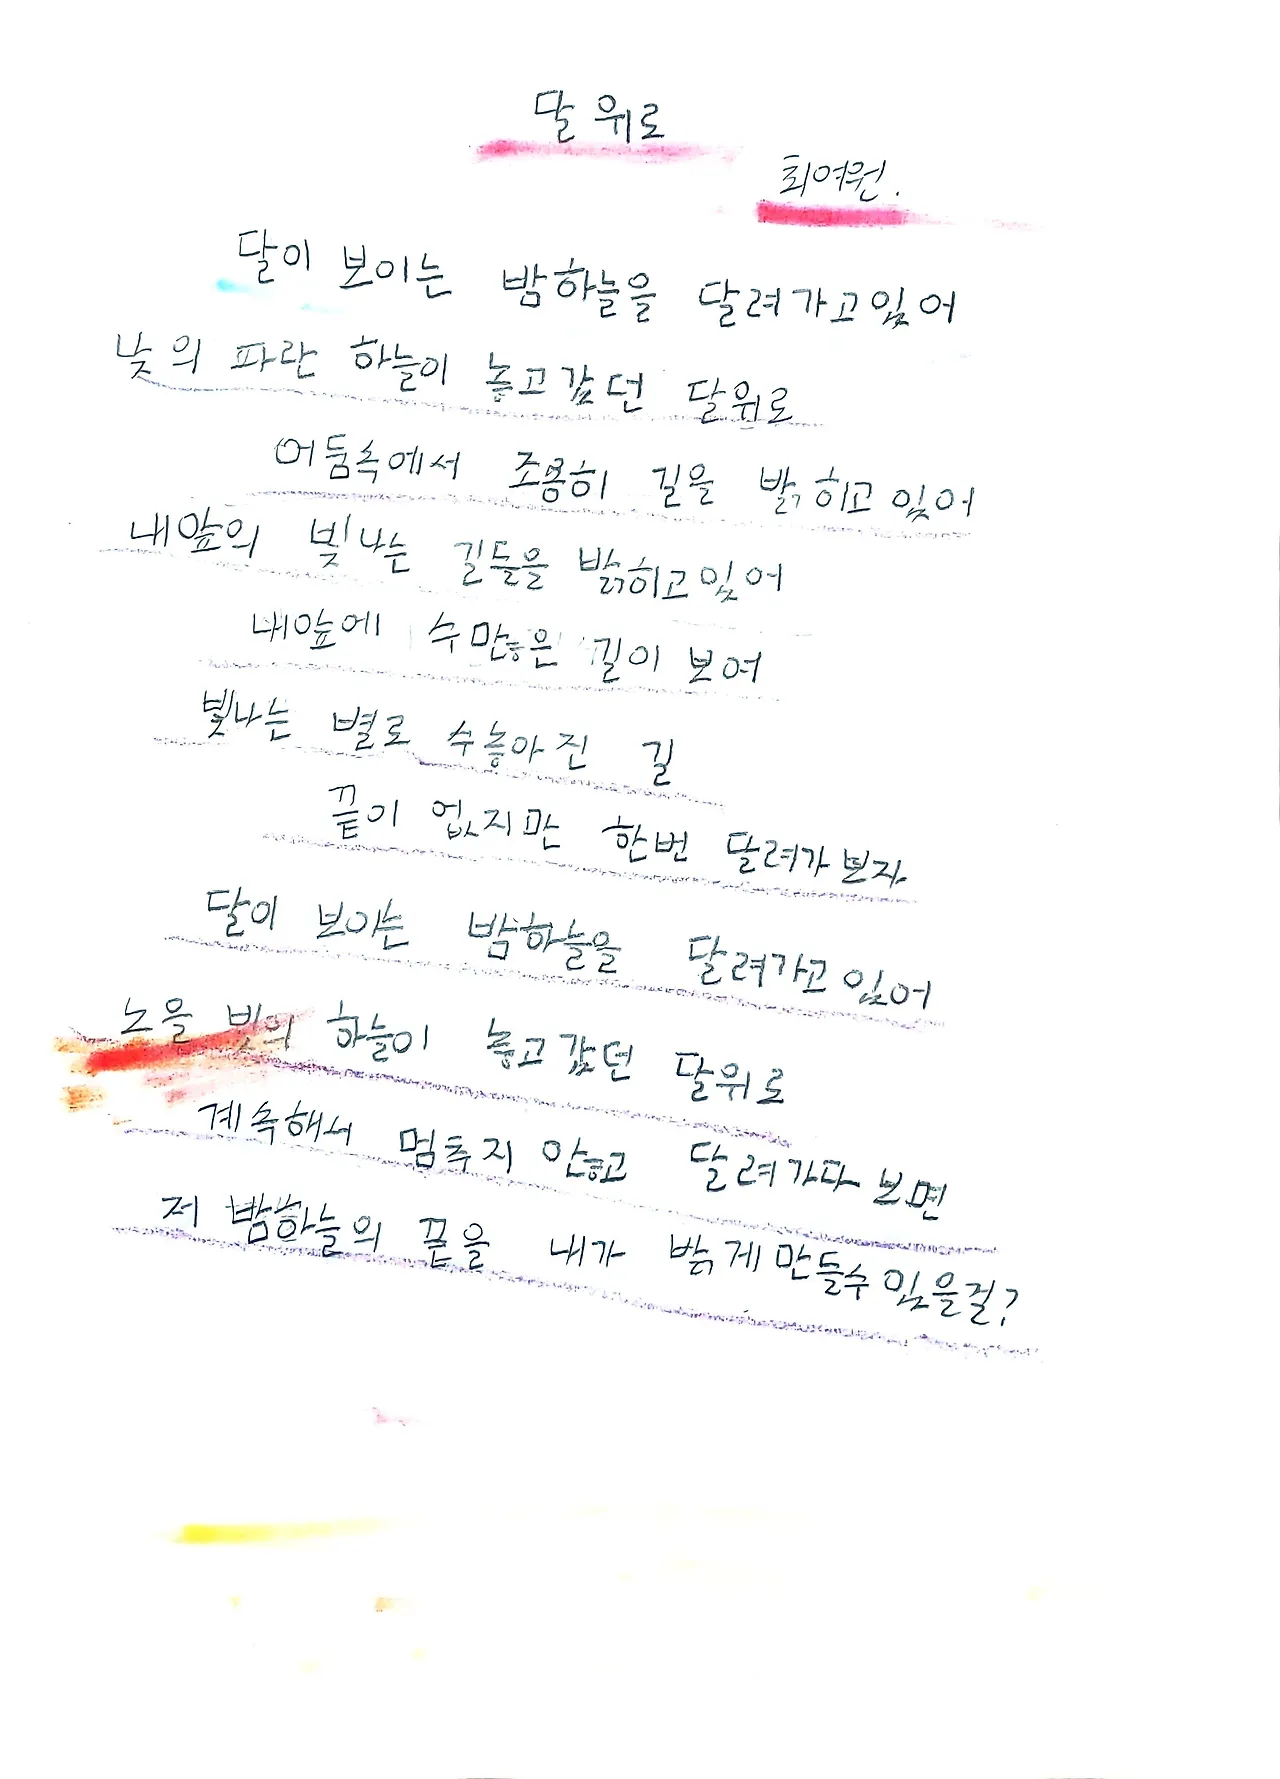 달 위로
최여원.
달이 보이는 밤하늘을 달려가고있어
낮의 파란 하늘이 놓고갔던 달위로
어둠속에서 조용히 길을 밝히고 있어
내앞의 빛나는 길들을 밝히고있어
내앞에 수많은 길이 보여
빛나는 별로 수놓아진 길
끝이 없지만 한번 달려가보자
달이 보이는 밤하늘을 달려가고있어
노을 빛의 하늘이 놓고갔던 달위로
계속해서 멈추지 않고 달려가다보면
저 밤하늘의 끝을 내가 밝게만들수있을걸?